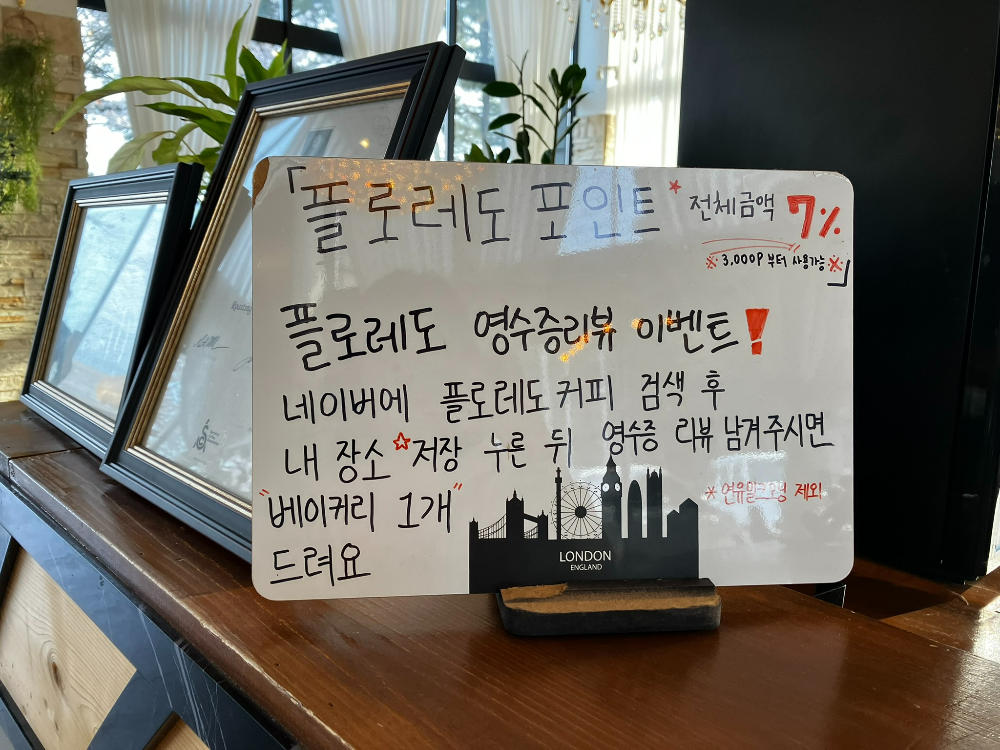 「플로레도 포인트 *전체금액 7%
※3,000P부터 사용가능※」
플로레도 영수증리뷰 이벤트!
네이버에 플로레도커피 검색 후
내 장소 ☆저장 누른 뒤 영수증 리뷰 남겨주시면
"베이커리 1개"
*연유밀크모닝 제외
드려요
LONDON
ENGLAND